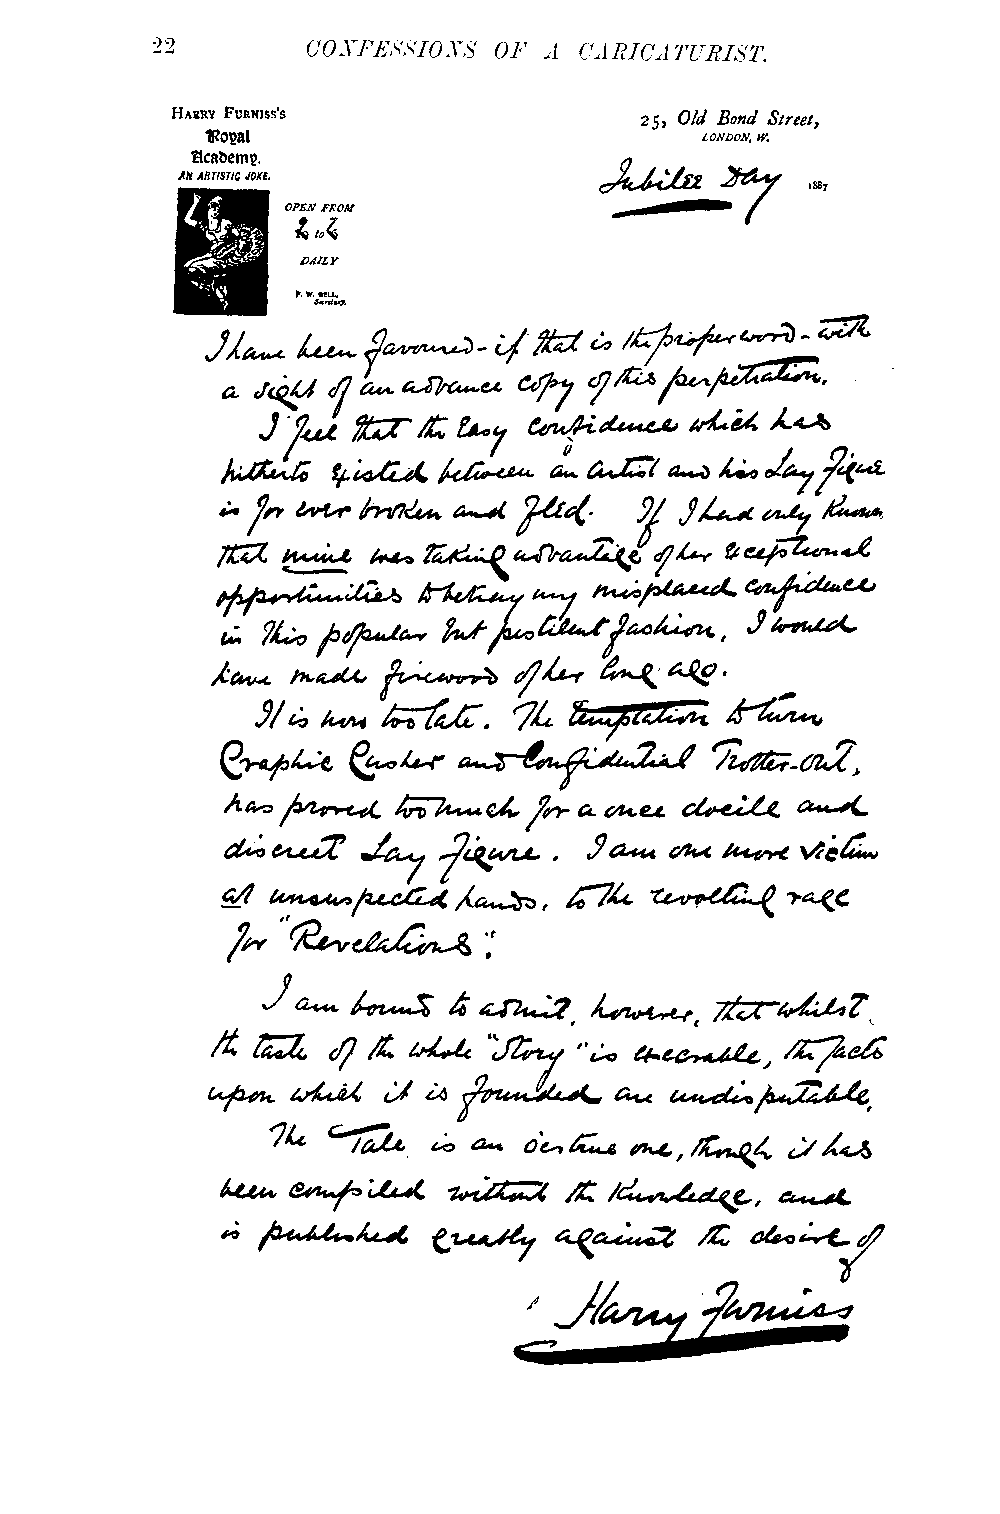 22
CONFESSIONS OF A CARICATURIST.
HARRY FURNISS'S
Royal
Academy.
AN ARTISTIC JOKE.
OPEN FROM
to
DAILY
25, Old Bond Street,
LONDON, W.
Jubilee Day 1887
I have been favoured - if that is the proper word - with
a sight of an advance copy of this perpetration.
I feel that the easy confidence which has
hitherto existed between an Artist and his Lay Figure
is for ever broken and fled. If I had only known
that mine was taking advantage of her exceptional
opportunities to betray my misplaced confidence
in this popular but pestilent fashion, I would
have made firewood of her long ago.
It is now too late. The temptation to turn
Graphic Gusher and Confidential Trotter-out,
has proved too much for a once docile and
discreet Lay Figure. I am one more victim
at unsuspected hands, to the revolting rage
for "Revelations".
I am bound to admit, however, that whilst
the taste of the whole "Story" is execrable, the facts
upon which it is founded are undisputable.
The Tale is an o'er true one, though it has
been compiled without the knowledge, and
is published greatly against the desire of
Harry Furniss